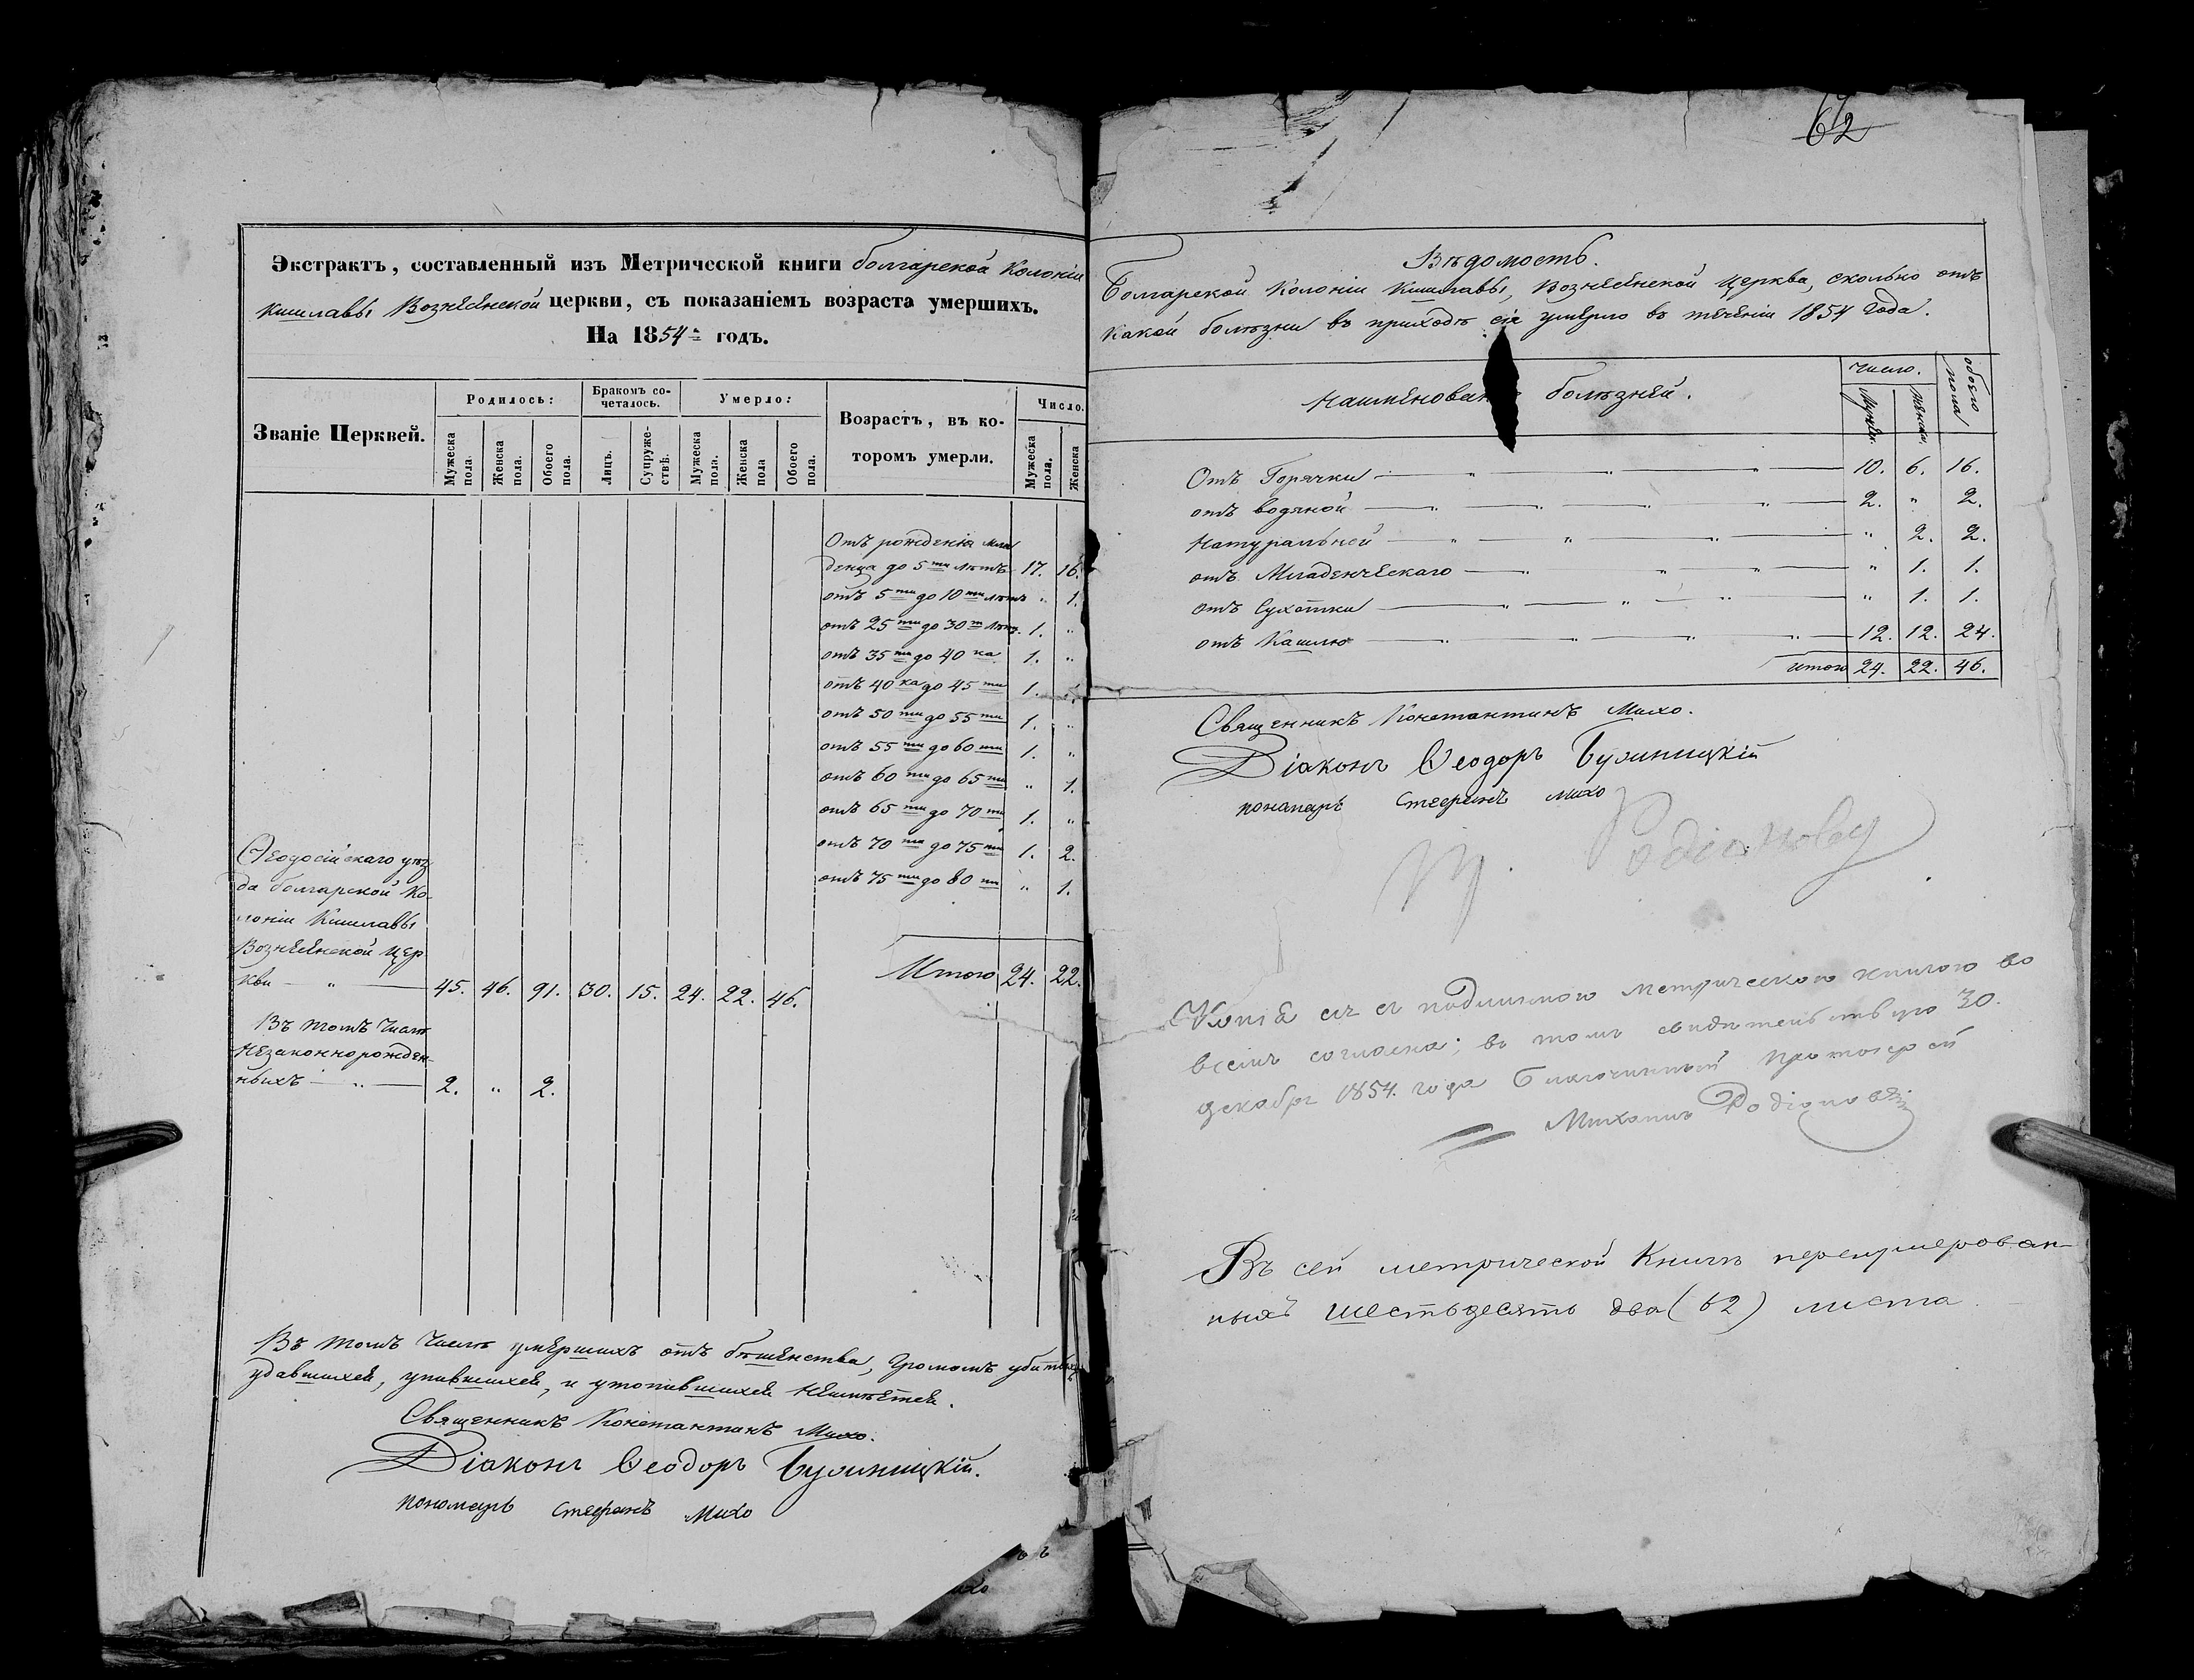 Экстрактъ, составленный изъ Метрической книги болгарской Колоніи
Кишлавы Вознесенской церкви, съ показаніемъ возраста умершихъ.
На 1854й годъ.
Званіе Церквей.
Родилось:
Мужеска пола.
Женска пола.
Обоего пола.
Бракомъ сочеталось.
Лицъ.
Супружествъ.
Умерло:
Мужеска пола.
Женска пола
Обоего пола.
Возрастъ, въ которомъ умерли.
Число.
Мужеска пола.
Женска
Отъ рожденія мла
денца до 5ти лѣтъ 17. 16.
отъ 5ти до 10ти лѣтъ „ 1.
отъ 25ти до 30ти лѣтъ. 1. „
отъ 35ти до 40ка 1. „
отъ 40ка до 45ти 1.
отъ 50ти до 55ти 1. „
отъ 55ти до 60ти 1. „
отъ 60ти до 65ти „ 1.
отъ 65ти до 70ти 1. „
отъ 70ти до 75ти 1. 2.
отъ 75ти до 80ти „ 1.
Итого 24. 22.
Ѳеодосійскаго уѣз
да болгарской Ко-
лоніи Кишлавы
Вознесенской Цер
кви — „ — 45. 46. 91. 30. 15. 24. 22. 46.
Въ томъ Числѣ
Незаконнорожден-
ныхъ — „ — 2. „ 2.
Въ томъ Числѣ умершихъ отъ бѣшенства, Громомъ убитыхъ
удавшихся, упившихся, и утопившихся Неимѣется.
Священникъ Константинъ Михо.
Діаконъ Ѳеодоръ Булиницкій.
пономарь Стефанъ Михо
62
Вѣдомость.
Болгарской Колоніи Кишлавы, Вознесенской Церква, сколько отъ
какой болѣзни въ приходѣ сія умерло въ теченіи 1854 Года.
Наименован болѣзней.
Число.
Мужеск.
Женск.
обоего пола
Отъ Горячки — „ — „ — „ — 10. 6. 16.
отъ водяной — „ — „ — „ — „ — 2. „ 2.
Натуральной — „ — „ — „ — „ 2. 2.
отъ Младенческаго — „ — „ — „ — „ 1. 1.
отъ Сухотки — „ — „ — „ — „ 1. 1.
отъ Кашлю — „ — „ — „ — „ — 12. 12. 24.
итого 24. 22. 46.
Священникъ Константинъ Михо.
Діаконъ Ѳеодоръ Булиницкій
понамарь Стефанъ Михо
Копія сія съ подлинною метрическою книгою во
всемъ согласна; въ томъ свидѣтельствую 30.
декабря 1854. года Благочинный Протоіерей
Михаилъ Родіоновъ
Въ сей метрической Книгѣ перенумерован-
ныхъ шестьдесятъ два (62) листа